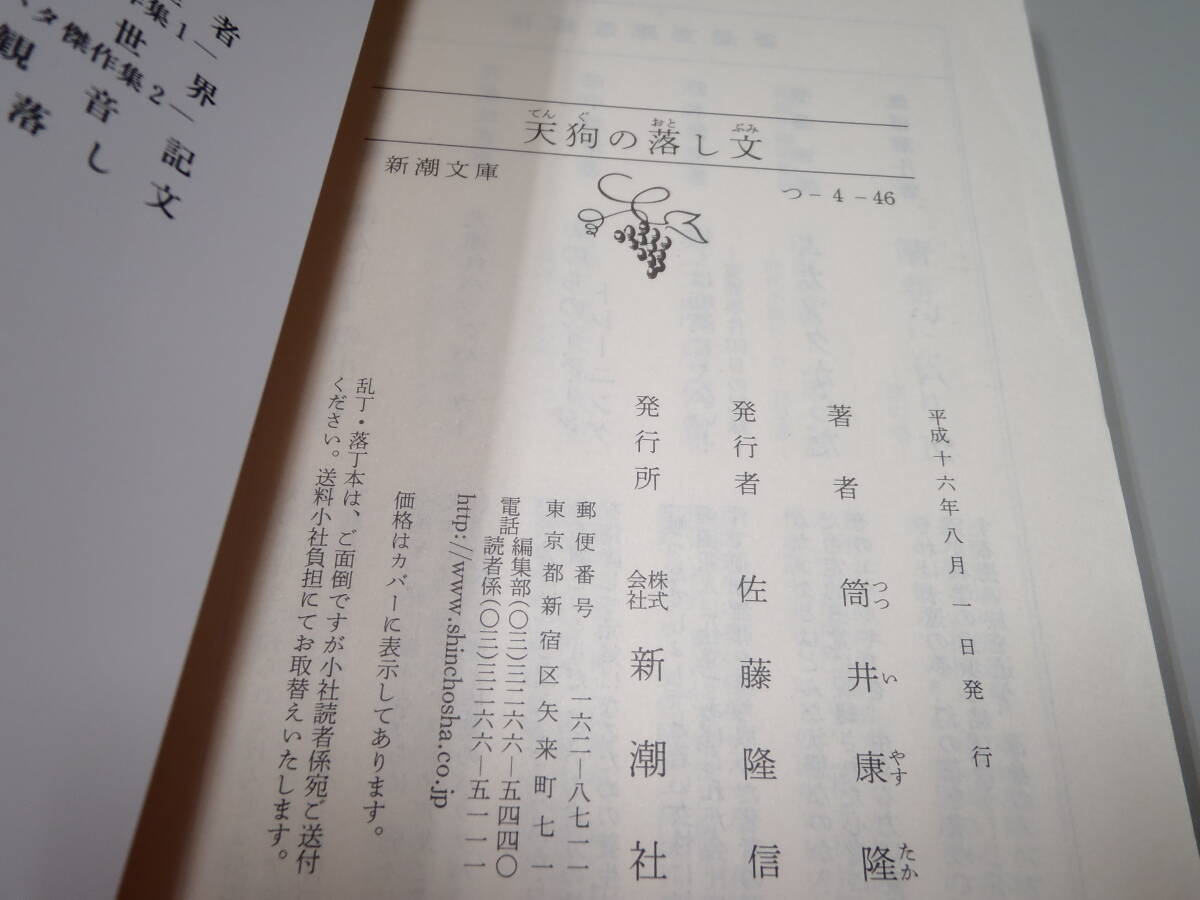 天狗の落し文
てん ぐ おと ぶみ
新潮文庫
つ-4-46
平成十六年八月一日発行
著者 筒井康隆
つつ い やす たか
発行者 佐藤隆信
発行所 株式会社 新潮社
郵便番号 一六二―八七一一
東京都新宿区矢来町七一
電話 編集部(〇三)三二六六―五四四〇
読者係(〇三)三二六六―五一一一
http://www.shinchosha.co.jp
価格はカバーに表示してあります。
乱丁・落丁本は、ご面倒ですが小社読者係宛ご送付
ください。送料小社負担にてお取替えいたします。
者
界
世
集1―
記文
音し
傑作集2―
観
落